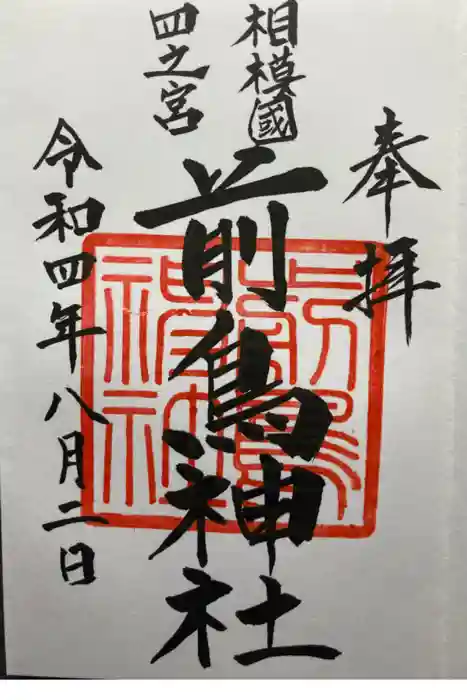 奉拝
相模國
四之宮
前鳥神社
令和四年八月二日